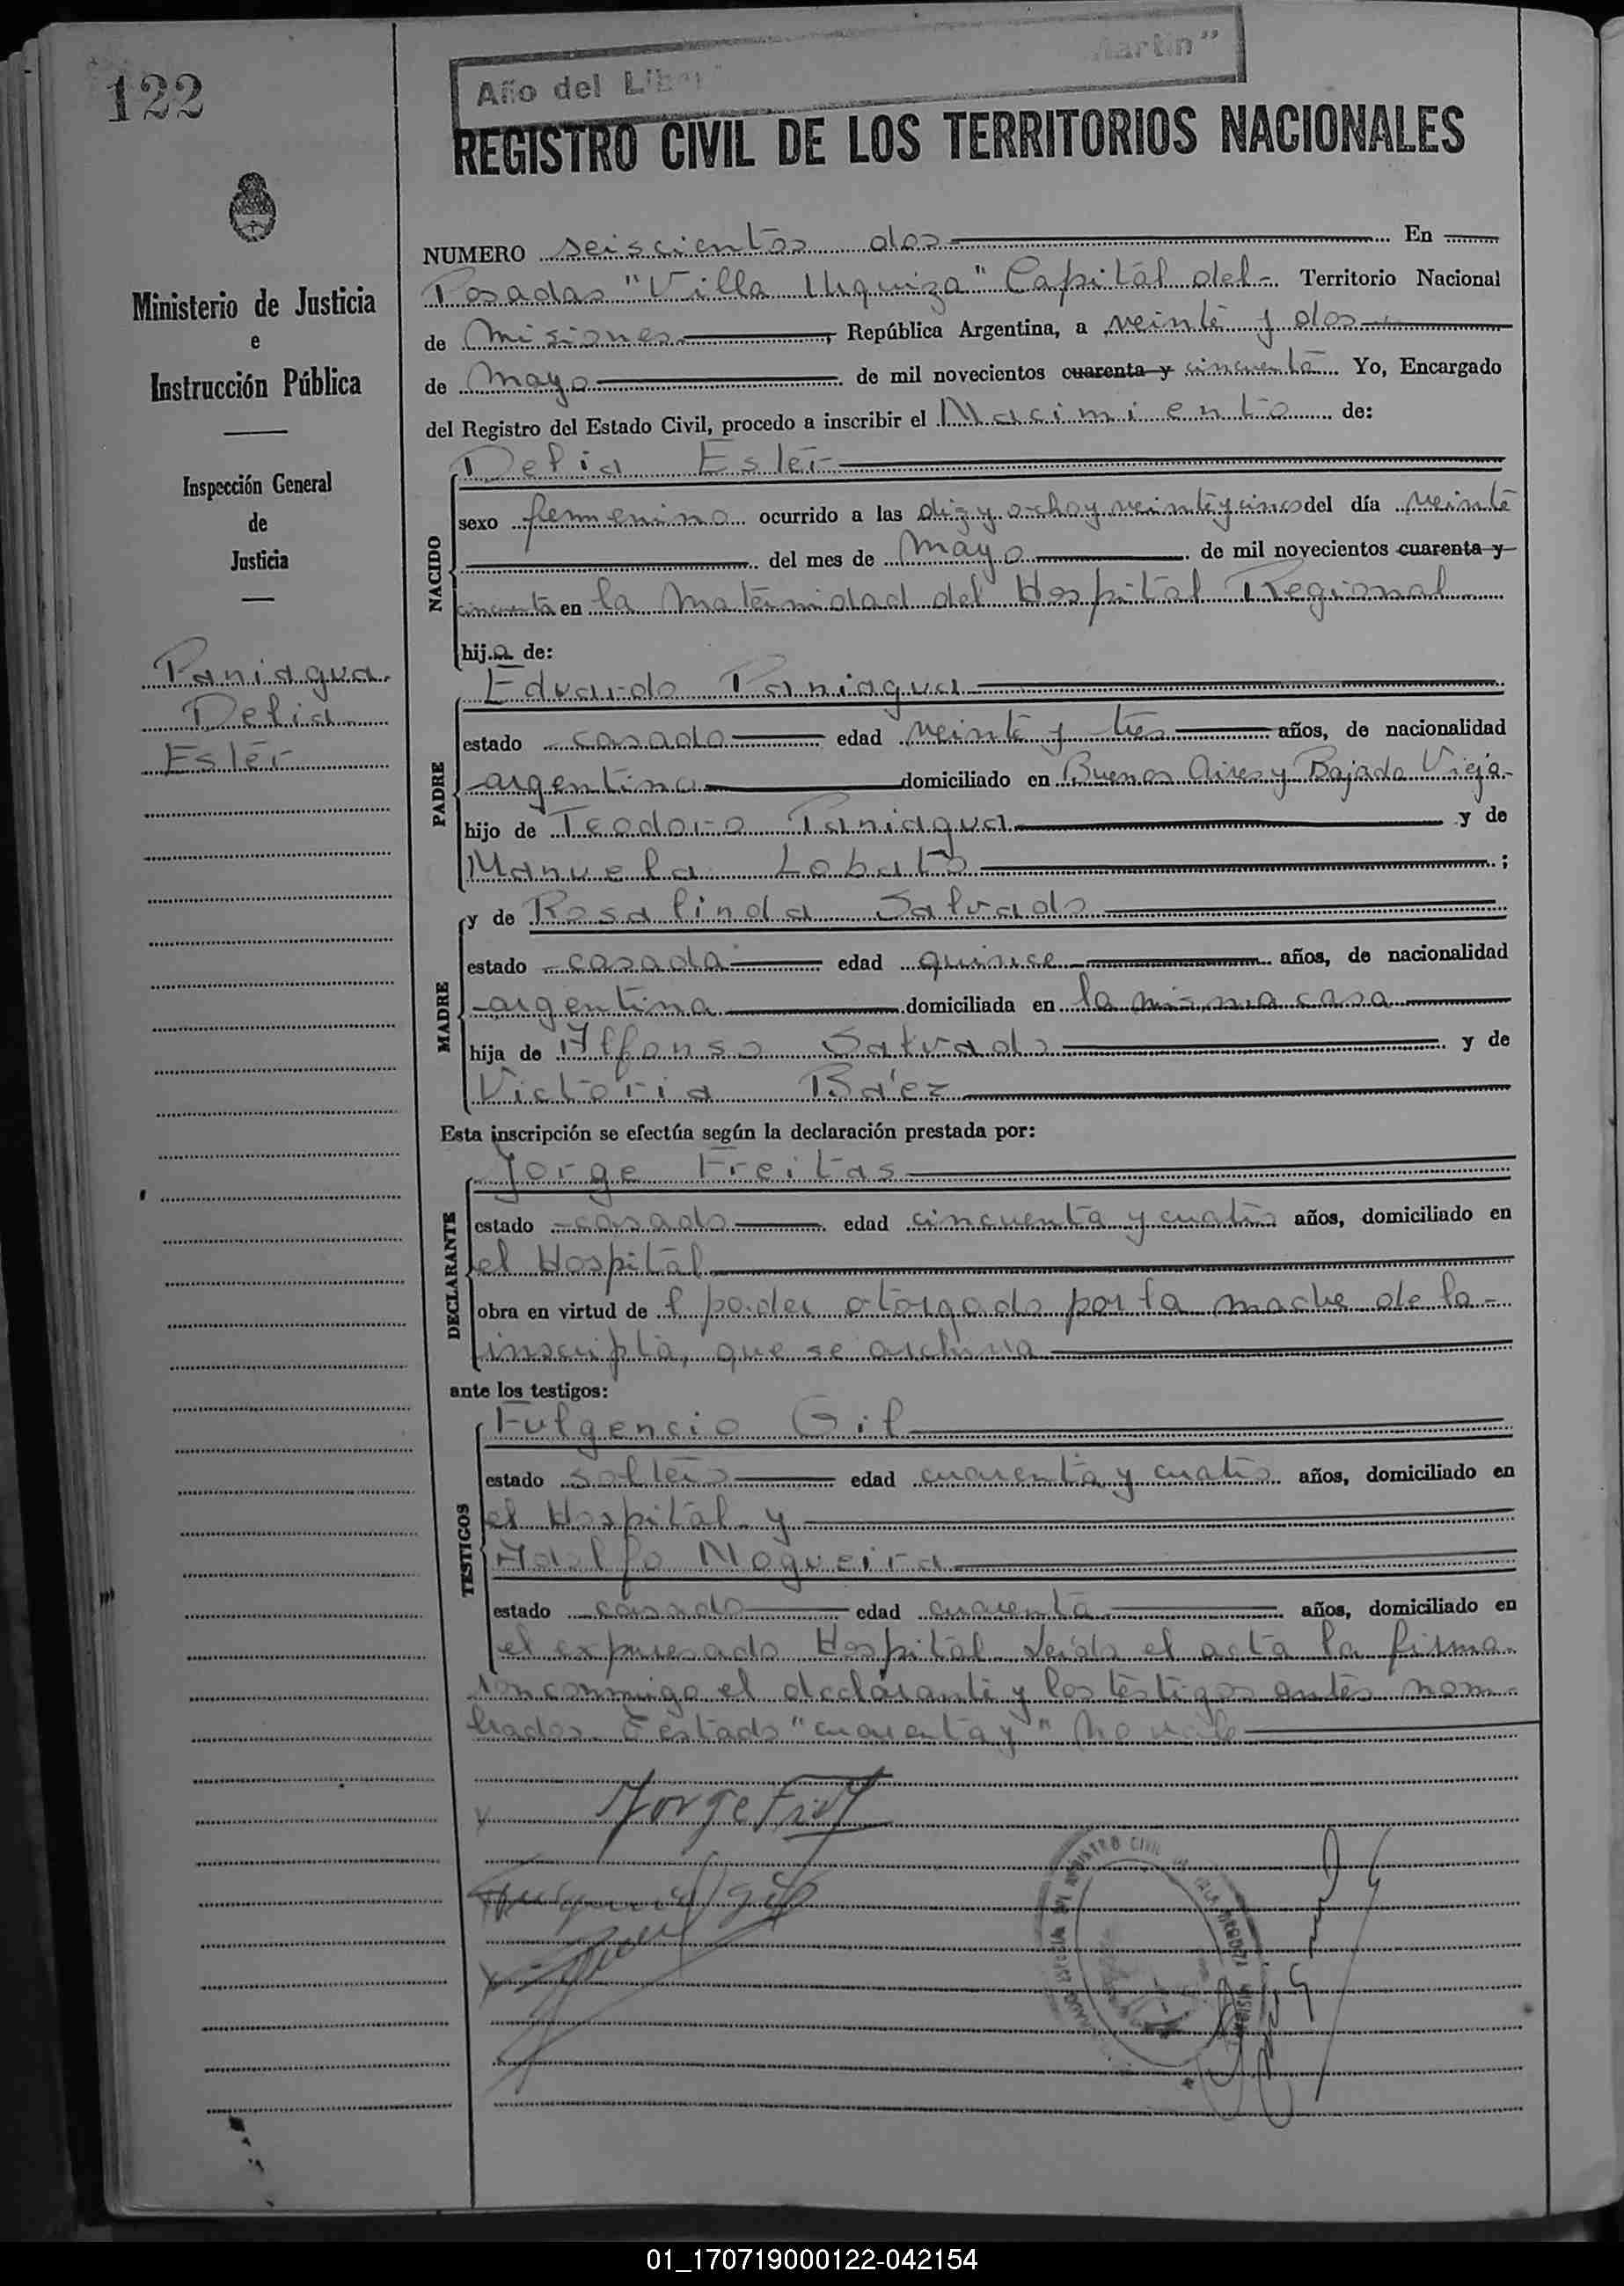 122
Año del Liber Martín"
REGISTRO CIVIL DE LOS TERRITORIOS NACIONALES
Ministerio de Justicia
e
Instrucción Pública
Inspección General
de
Justicia
Paniagua
Delia
Ester
NUMERO seiscientos dos En
Posadas "Villa Urquiza" Capital del Territorio Nacional
de Misiones, República Argentina, a veinte y dos
de Mayo de mil novecientos cuarenta y cincuenta Yo, Encargado
del Registro del Estado Civil, procedo a inscribir el Nacimiento de:
NACIDO
Delia Ester
sexo femenino ocurrido a las diez y ocho y veinte y cinco del día veinte
del mes de Mayo de mil novecientos cuarenta y
cincuenta en la Maternidad del Hospital Regional
hija de:
PADRE
Eduardo Paniagua
estado casado edad veinte y tres años, de nacionalidad
argentina domiciliado en Buenos Aires y Bajada Vieja
hijo de Teodoro Paniagua y de
Manuela Lobato;
MADRE
y de Rosalinda Salvado
estado casada edad quince años, de nacionalidad
argentina domiciliada en la misma casa
hija de Alfonso Salvado y de
Victoria Báez
Esta inscripción se efectúa según la declaración prestada por:
DECLARANTE
Jorge Freitas
estado casado edad cincuenta y cuatro años, domiciliado en
el Hospital
obra en virtud del poder otorgado por la madre de la
inscripta, que se archiva
ante los testigos:
TESTIGOS
Fulgencio Gil
estado soltero edad cuarenta y cuatro años, domiciliado en
el Hospital y
Adolfo Nogueira
estado casado edad cuarenta años, domiciliado en
el expresado Hospital. Leída el acta la firma
ron conmigo el declarante y los testigos antes nom
brados. Testado "cuarenta y" No vale
Jorge
REGISTRO CIVIL VILLA URQUIZA
01_170719000122-042154